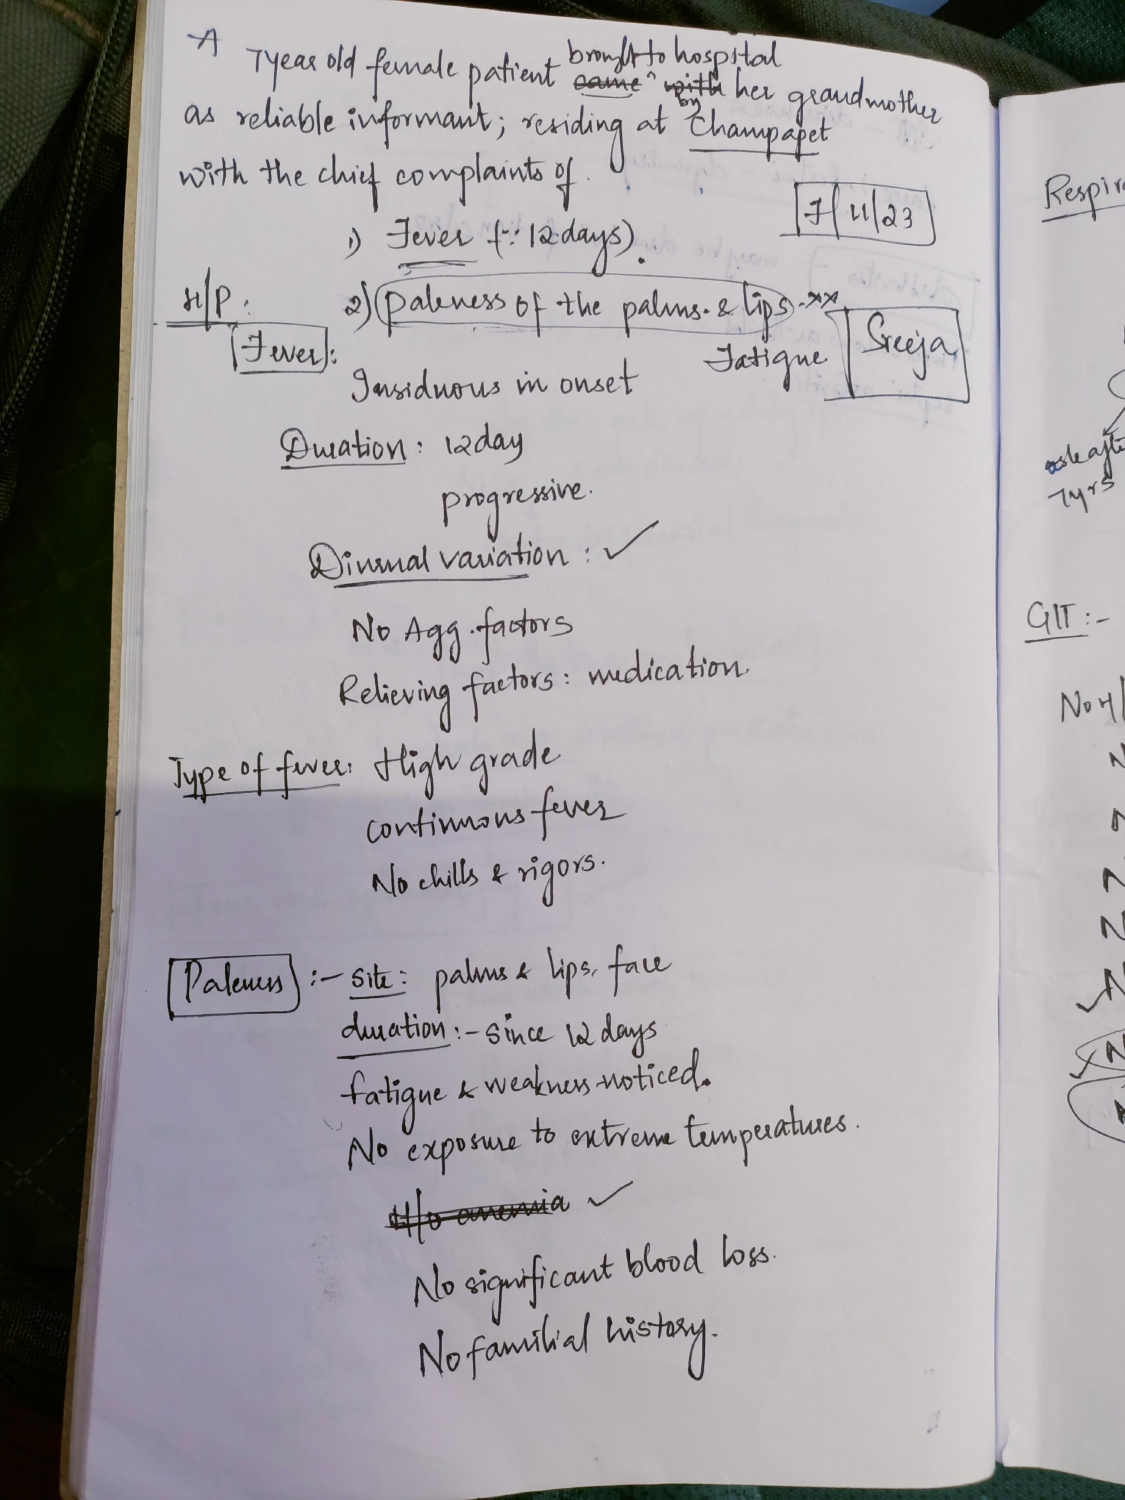 A 7year old female patient came brought to hospital with by her grandmother
as reliable informant; residing at Champapet
with the chief complaints of.
7/11/23
1) Fever (∵ 12days).
H/P:
2) paleness of the palms & lips -**
Fatigue
Sreeja
Fever:
Insiduous in onset
Duration: 12day
progressive.
Diurnal variation: ✓
No Agg. factors
Relieving factors: medication.
Type of fever: High grade
continuous fever
No chills & rigors.
Paleness :- site: palms & lips, face
duration:- since 12 days
fatigue & weakness noticed.
No exposure to extreme temperatures.
H/o anemia ✓
No significant blood loss.
No familial history.
Respir
ask afte
7yrs
GIT:-
No H/